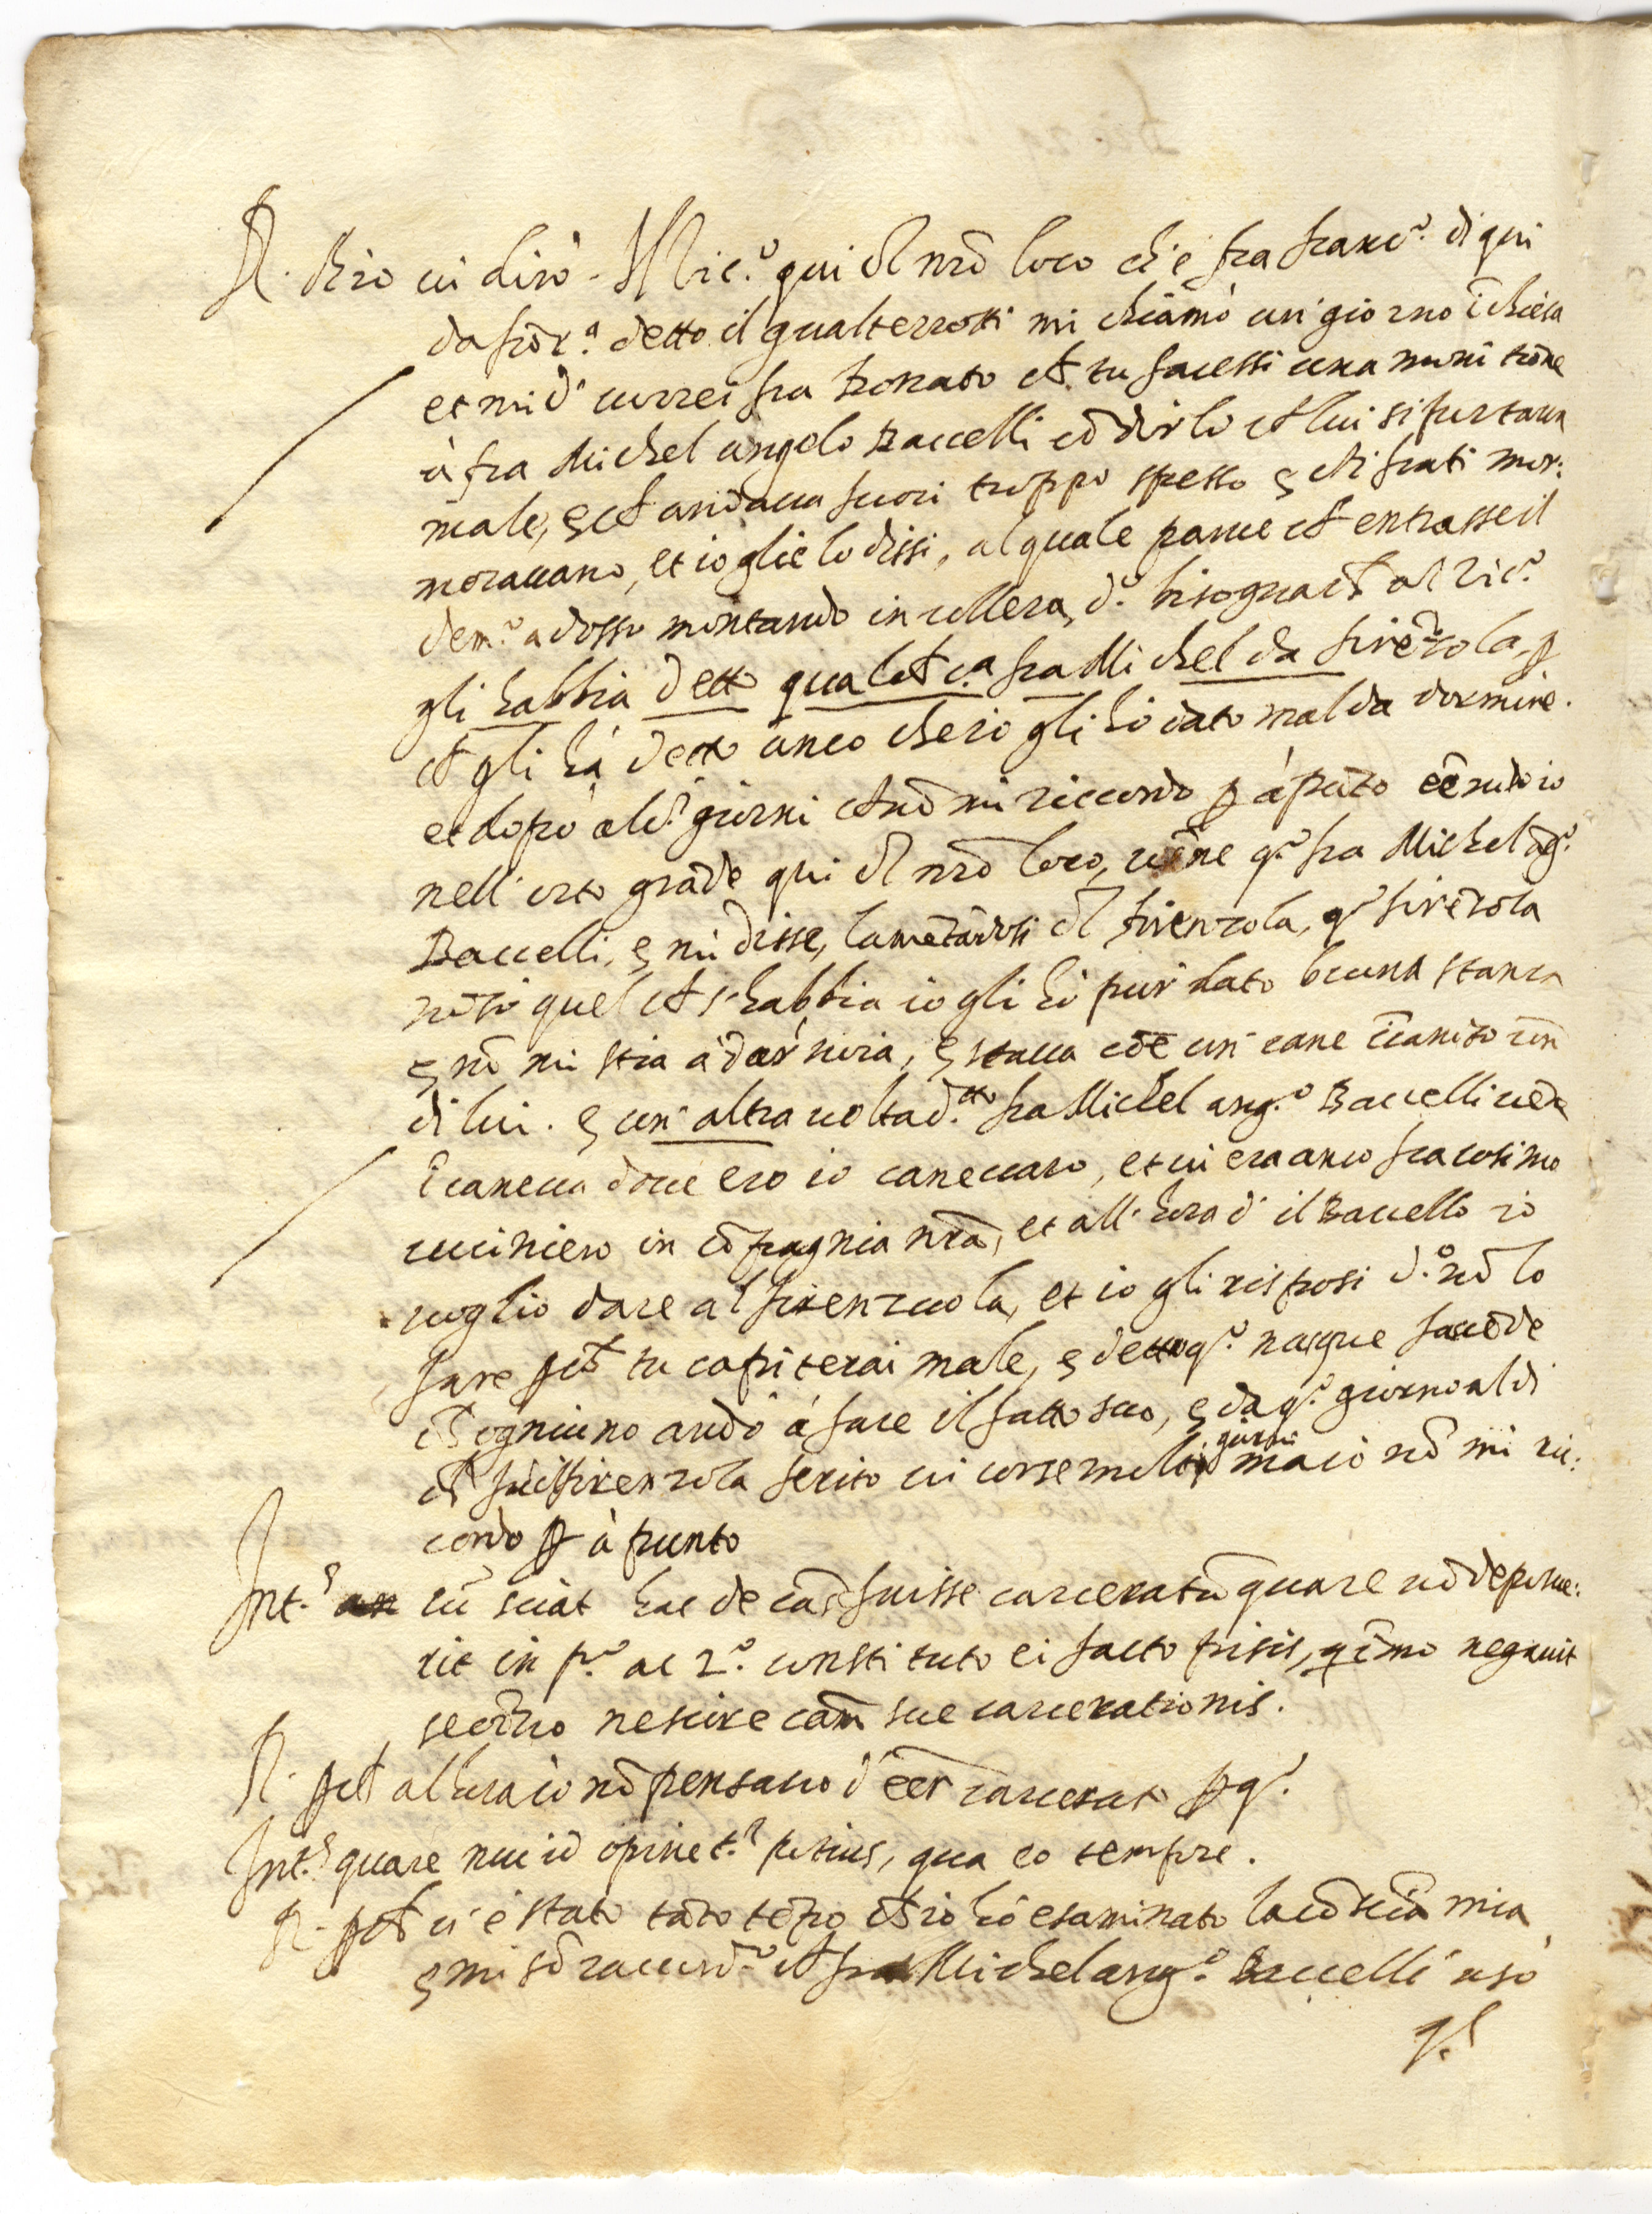 R. Ch'io vi dirò. Il Vic.º qui del nrō loco ch'è fra franc.º di qui
da fiōr.ª detto il gualterrotti mi chiamò un giorno ī chiesa
et mi d' vorrei fra Donato ch. tu facessi una monitione
à fra Michel angelo Baccelli cō dirlo ch lui si portava
male, e ch andava fuori troppo spesso e ch i frati mor:
moravano, et io glie lo dissi, al quale parve ch entrasse il
dem.º adosso montando in collera, d.º bisogna ch al Vic.º
gli habbia detto qualch c.ª fra Michel da firēzola, p
ch gli hà detto anco che io gli hò dato mal da dormire.
et dopo alc.i giorni ch nō mi riccordo p à pūto eēndo io
nell' orto grāde qui del nrō loco, vēne q.º fra Michel āg.º
Baccelli, e mi disse, lamētādosi del firenzola, q.º firēzola
nō sò quel ch s'habbia io gli hò pur dato buona stanza
e nō mi stia à dar noia, e stava cōe un cane īcanito vēn
di lui. e un' altra volta d.tto fra Michel ang.º Baccelli vēn
ī caneva dove ero io canevaro, et vi era anco fra cosimo
cuciniero in cōpagnia nrā, et all' hora d' il Baccello io
voglio dare al firenzuola, et io gli risposi d.º nō lo
fare pch tu capiterai male, e detto q.º nacque faccēde
ch ogniuno andò à fare il fatto suo, e da q.º giorno al dì
ch fu il firenzola ferito vi corse molti giorni ma io nō mi ric:
cordo p à punto
Int.s cū sciat hac de cā fuisse carceratū quare nō deposue:
rit in p.º ac 2.º constituto ei facto prisis, q īmo negavit
secūdo nescire cām sue carcerationis.
R. pch all' hora io nō pensavo d' eēr carcerato p q.º
Int.s quare nuc id opinet.r potius, qua eo tempore.
R. pch vi è stato tāto tēpo ch io hò esaminato la cōsciā mia
e mi sō raccord.º ch fra Michel ang.º Baccelli usò